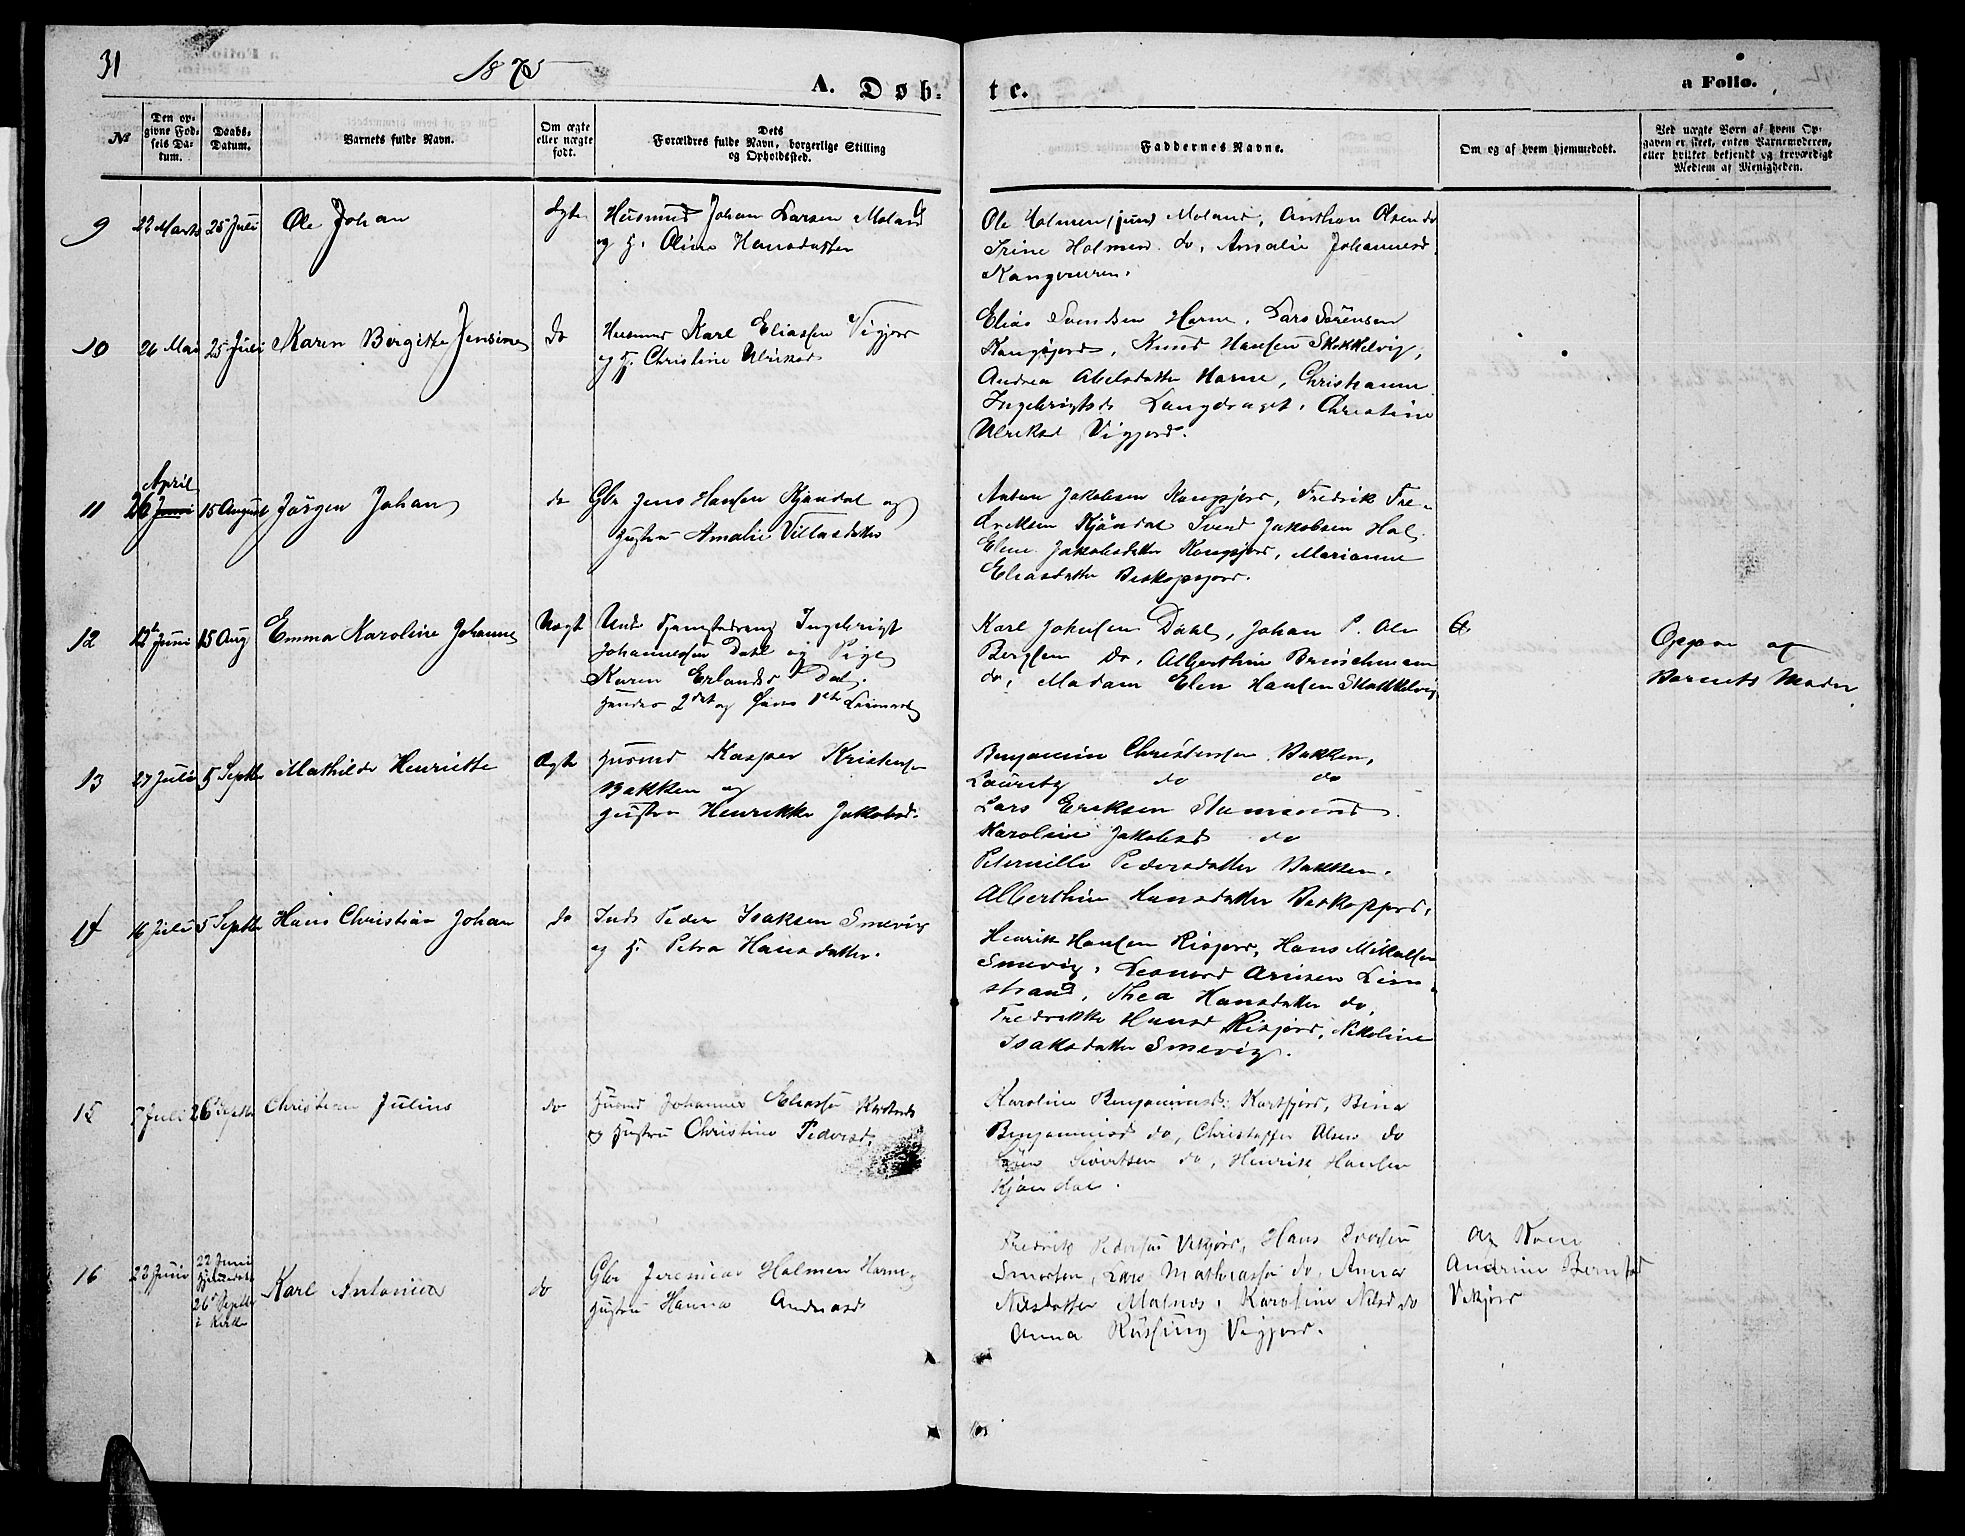 31
1875
A. Døb-
te.
a Folio.
№
Den op-
givne Fød-
sels Da-
tum.
Daabs-
Datum.
Barnets fulde Navn.
Om ægte
eller uægte
født.
Dets
Forældres fulde Navn, borgerlige Stilling
og Opholdssted.
Faddernes Navne.
Om og af hvem hjemmedøbt.
Ved uægte Børn af hvem Op-
gaven er skeet, enten Barnemoderen,
eller hvilket bekjendt og troværdigt
Medlem af Menigheden.
9 22 Marts 25 Juli Ole Johan ægte Husmd Johan Larsen Moland
og H. Oline Hansdatter
Ole Holmen, Moland, Anthon Olsen do
Trine Holmen do, Amalie Johannesd.
10 26 Mai 25 Juli Karen Bergitte Jensine do Husmd Karl Eliassen Vigjord
og H. Christine Ulriksd
Elias Svendsen Horne, Lars Sørensen
Kongsjord, Knud Hansen Skokkelvig,
Andrea Abelsdatter Horne, Christianne
Ingebrigtsd Langdraget, Christine
Ulriksd Vigjord.
April
11 26 Juni 15 August Jørgen Johan do Gbr Jens Hansen Kjøndal og
Hustru Amalie Villasdatter
Anton Jakobsen Kongsjord, Fredrik Fre-
driksen Kjøndal Svend Jakobsen Hol
Elene Jakobsdatter Kongsjord, Marianne
Eliasdatter Beskopsjord.
12 12t Juni 15 Aug Emma Karoline Johanne Uægt Ingebrigt
Johannessen Dahl og Pige
Karen Erlandsd Dal.
Hendes 2det og Hans 1ste Leiermaal
Karl Johnsen Dahl, Johan P. Ole
Bergsen do, Alberthine Brinchmann
do, Madam Elen Hansen Skokkelvig
Opgave af
Barnets Moder
13 27 Juli 5 Septbr Mathilde Henriette Ægte Husmd Kasper Kristensen
Bakken og
Hustru Henrikke Jakobsd.
Benjamin Christensen Bakken,
Lauritz do do
Lars Eriksen Stemsund
Karoline Jakobsd do
Peternille Pedersdatter Bakken.
Alberthine Hansdatter Beskopsjord.
14 16 Juli 5 Septbr Hans Christian Johan do Inds Peder Isaksen Smevig
og H. Petra Hansdatter.
Henrik Hansen Risjord, Hans Mikalsen
Smevig, Leonard Arnsen Leen-
strand, Thea Hansdatter do,
Fredrikke Hansd Risjord, Nikoline
Isaksdatter Smevig.
15 7 Juli 26 Septbr Christian Julius do Husmd Johannes Eliassen
og Hustru Christine Pedersd.
Karoline Benjaminsd: Kartfjord, Bina
Benjaminsd do, Christoffer Olsen do
Sivertsen do, Henrik Hansen
Kjøndal.
16 22 Juni 22 Juni
hjemmedøbt
26 Septbr
i Kirke
Karl Antonius do Gbr Jeremias Holmen Horne,
Hustru Hanna Andreasd
Fredrik Pedersen Vikjord, Hans
Smorten, Lars Mathiassen do, Anna
Nilsdatter Malnes, Karoline Nilsd do
Anna Rusfung Vigjord.
Af Kone
Andrine Berntsd
Vikjord